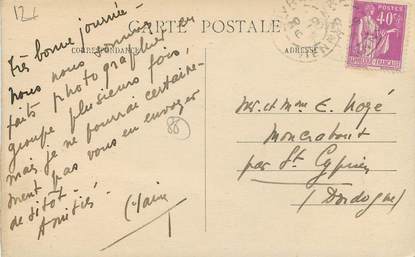 12f
CARTE POSTALE
CORRESPONDANCE
ADRESSE
Très bonne journée -
Nous nous sommes
faits photographier en
groupe plusieurs fois,
mais je ne pourrai certaine-
ment pas vous en envoyer
de sitôt -
Amitiés.
Claire
86
POSTES
40c
RÉPUBLIQUE FRANÇAISE
Mr. et Mme E. Nozé
Moncrabout
par St. Cyprien
(Dordogne)